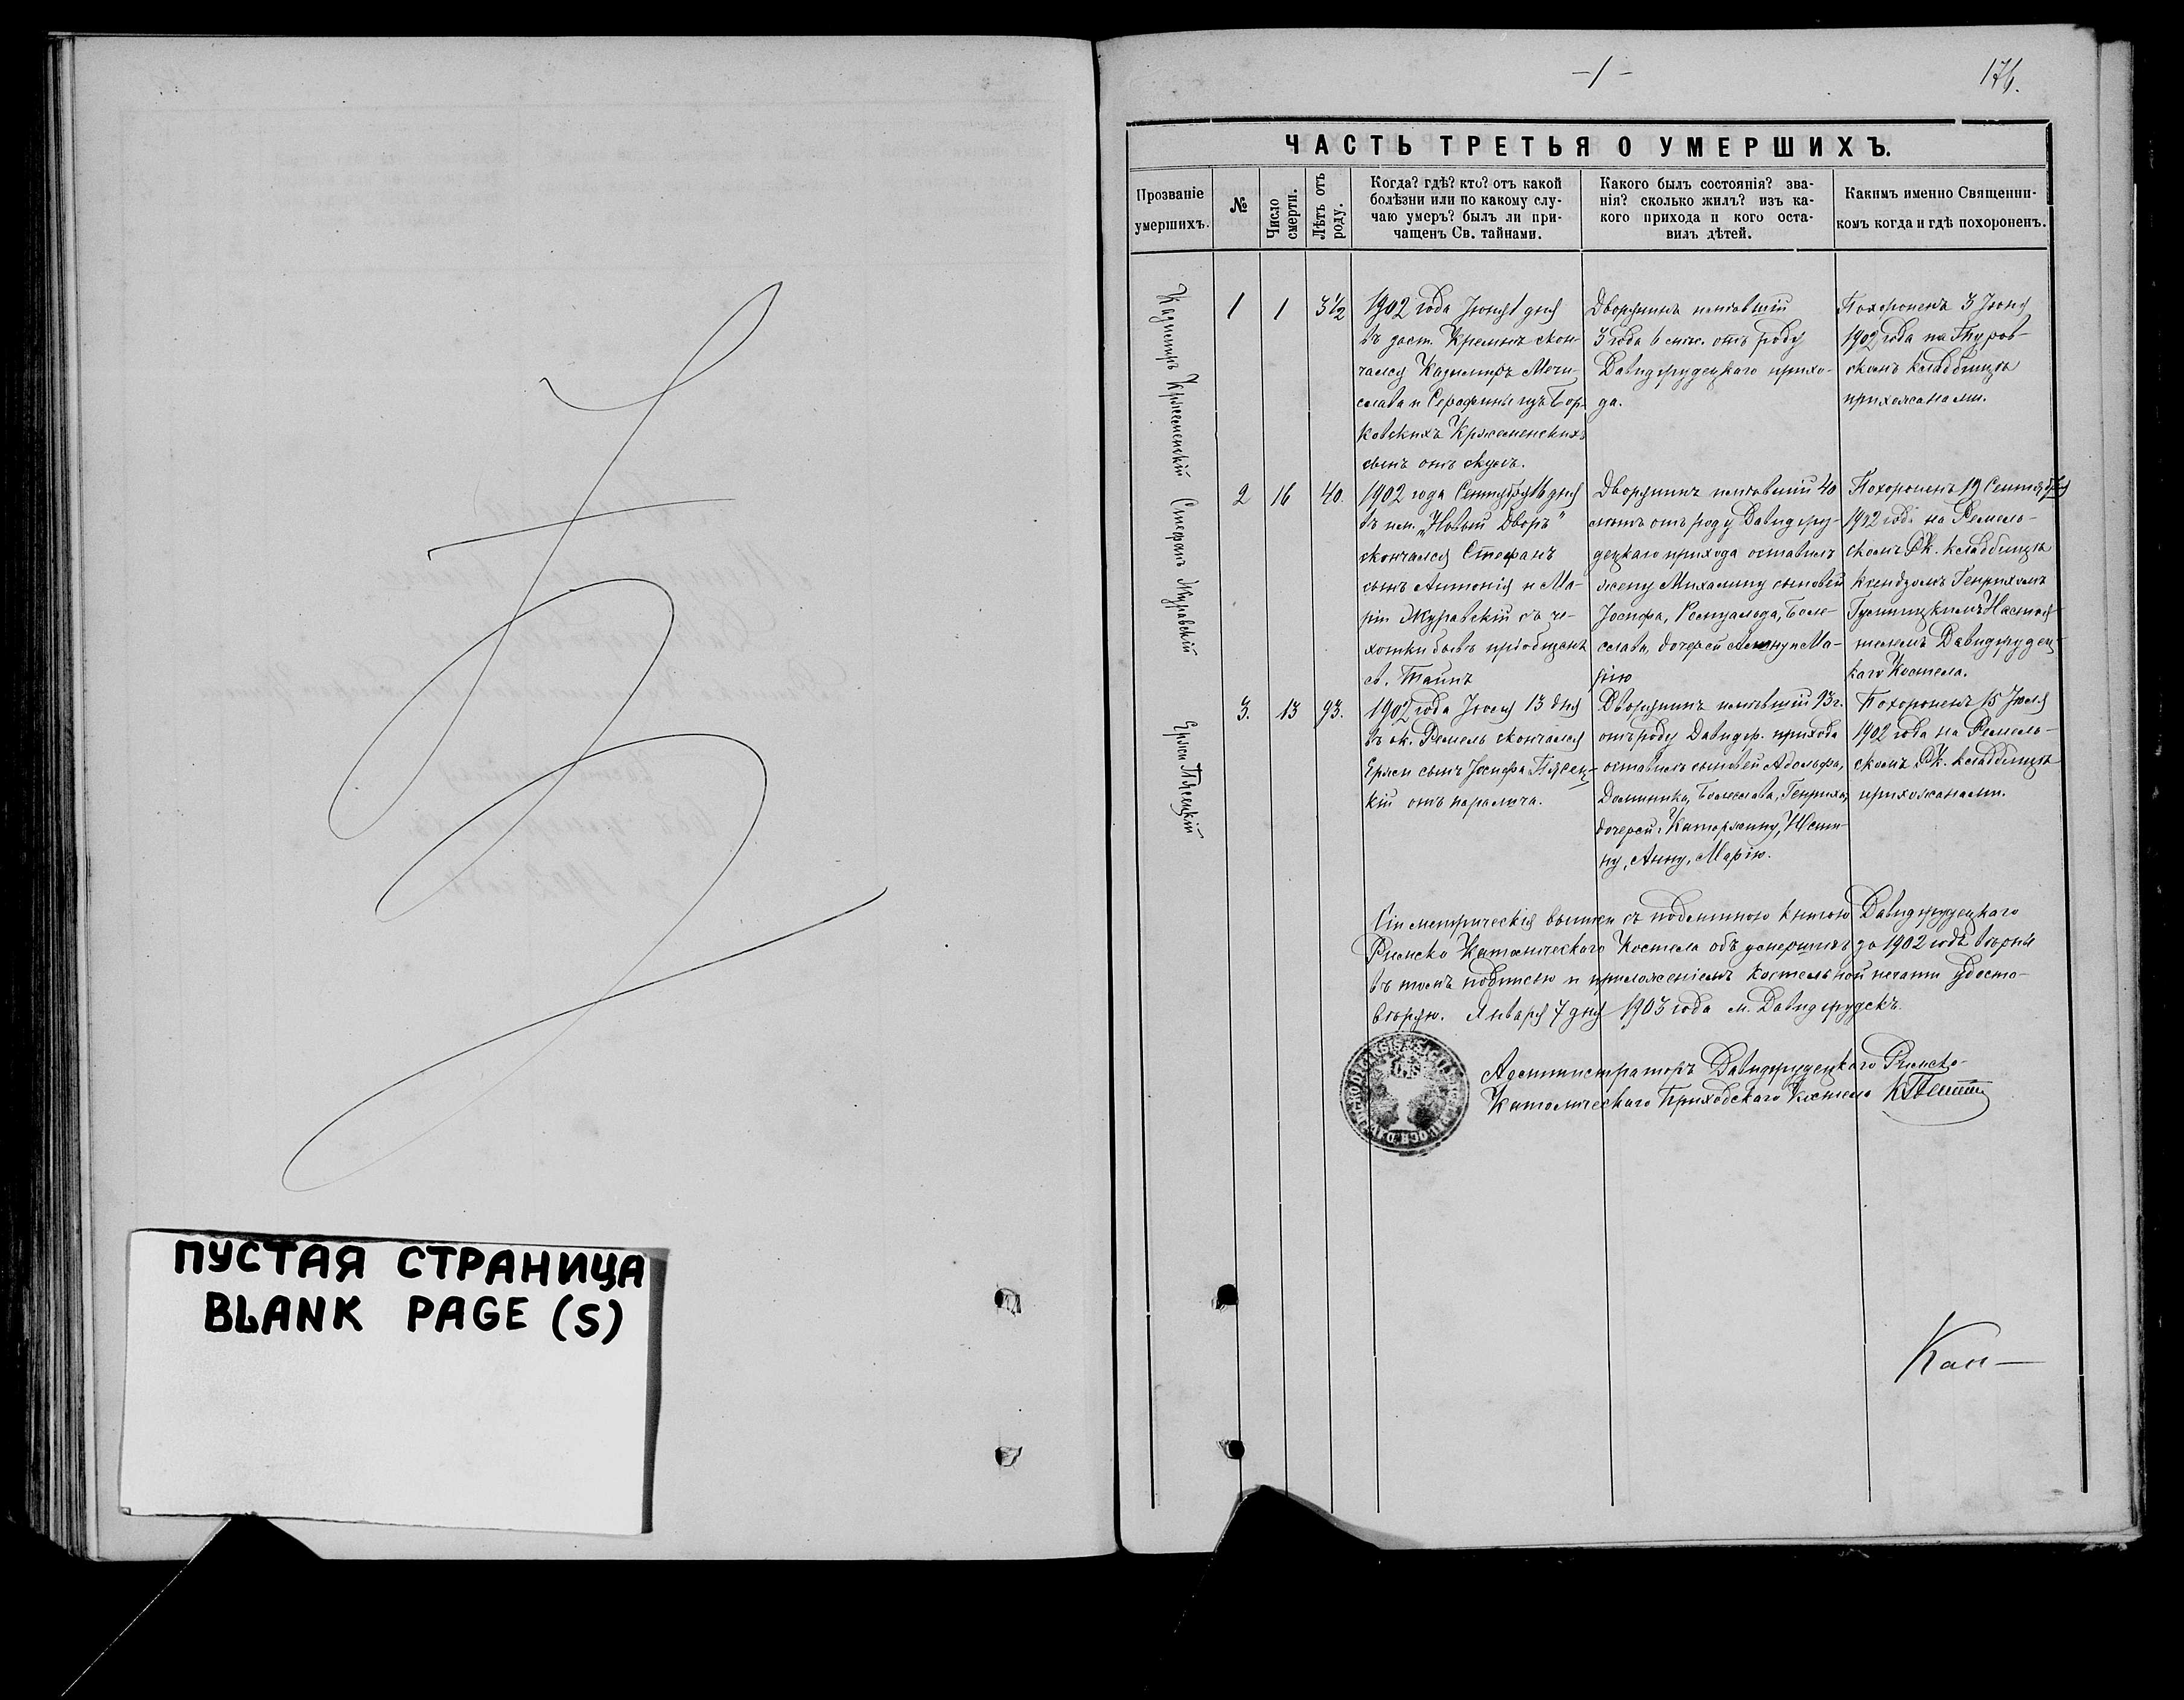 ПУСТАЯ СТРАНИЦА
BLANK PAGE (S)
-1-
176.
ЧАСТЬ ТРЕТЬЯ О УМЕРШИХЪ.
Прозваніе
умершихъ.
№
Число
смерти.
Лѣтъ отъ
роду.
Когда? гдѣ? кто? отъ какой
болѣзни или по какому слу-
чаю умеръ? былъ ли при-
чащенъ Св. тайнами.
Какого былъ состоянія? зва-
нія? сколько жилъ? изъ ка-
кого прихода и кого оста-
вилъ дѣтей.
Какимъ именно Священни-
комъ когда и гдѣ похороненъ.
Казимиръ Кржеменскій
1
1
3½
1902 года Іюня 1 дня
въ заст. Кремнѣ скон-
чался Казимиръ Мечи-
слава и Серафины изъ Бор-
ковскихъ Кржеменскихъ
сынъ отъ
Дворянинъ имѣвшій
3 года 6 мѣс. отъ роду
Давидгрудецкаго прихо-
да.
Похороненъ 3 Іюня
1902 года на Туров-
скомъ кладбищѣ
прихожанами.
Стефанъ Журавскій
2
16
40.
1902 года Сентября 16 дня
въ им. „Новый Дворъ"
скончался Стефанъ
сынъ Антонія и Ма-
ріи Журавскій съ че-
хотки бывъ пріобщенъ
св. Таинъ
Дворянинъ имѣвшій 40
лѣтъ отъ роду Давидгру-
децкаго прихода оставилъ
жену Михалину сыновей
Іосифа, Ромуальда, Боле-
слава, дочерей и Ма-
рію
Похороненъ 19 Сентября
1902 года на Ремель-
скомъ РК. кладбищѣ
ксендзомъ Генрихомъ
Настоя-
телемъ Давидгрудец-
каго Костела.
Пясецкій
3.
13
93.
1902 года Іюля 13 дня
въ ок. Ремель скончался
сынъ Іосифа Пясец-
кій отъ паралича.
Дворянинъ имѣвшій 93 г.
отъ роду Давидгр. прихода
оставилъ сыновей Адольфа,
Доминика, Болеслава, Генриха,
дочерей: Катаржину, Юсти-
ну, Анну, Марію.
Похороненъ 15 Іюля
1902 года на Ремель-
скомъ РК. кладбищѣ
прихожанами.
Сіи метрическія выписи съ подлинною книгою Давидгрудецкаго
Римско Католическаго Костела объ умершихъ за 1902 годъ вѣрны
въ томъ подписью и приложеніемъ костельной печати удосто-
вѣряю. Января 7 дня 1903 года м. Давидгрудекъ.
Администраторъ Давидгрудецкаго Римско-
Католическаго Приходскаго Костела